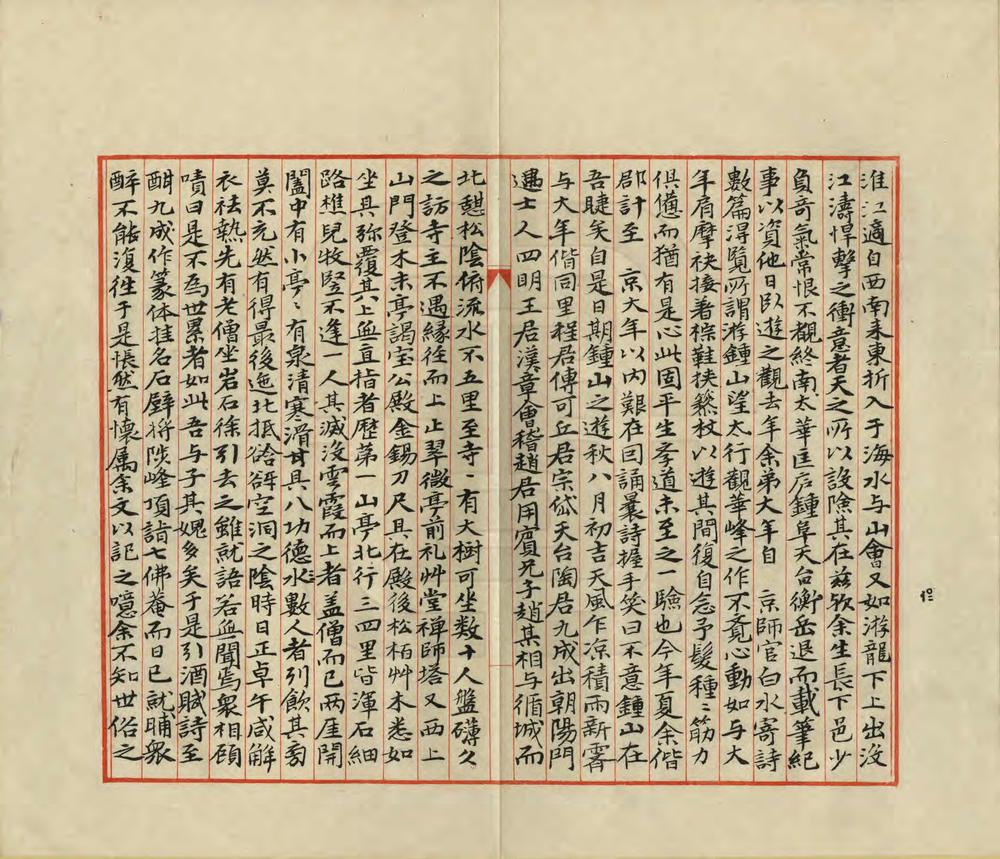 淮江適自西南来東折入于海水与山會又如游龍下上出没
江濤悍擊之衝意者天之所以設險其在兹欤余生長下邑少
負奇氣常恨不覩終南太華匡庐鍾阜天台衡岳退而載筆紀
事以資他日卧遊之觀去年余弟大年自　京師官白水寄詩
數篇淂覽所謂游鍾山望太行觀華峰之作不覔心動如与大
年肩摩袂接着椶鞋挟藜杖以遊其間復自念予髪種〻筋力
俱憊而猶有是心此固平生孝道未至之一驗也今年夏余偕
郡計至　京大年以内艱在囙誦曩詩握手笑曰不意鍾山在
吾睫矣自是日期鍾山之遊秋八月初吉天風乍凉積雨新霽
与大年偕同里程居傳可丘居宗岱天台陶居九成出朝陽門
遇士人四明王居漢章會稽趙居用賓兄子趙某相与循城而
北憇松陰俯流水不五里至寺〻有大樹可坐数十人盤礴久
之訪寺主不遇縁徑而上止翠微亭前礼艸堂禅師塔又西上
山門登木末亭謁宝公殿金錫刀尺具在殿後松栢艸木悉如
坐具弥覆其上無直指者歷第一山亭北行三四里皆渾石細
路樵兒牧竪不逢一人其滅没雲霞而上者盖僧而已兩厓開
闔中有小亭〻有泉清寒滑甘具八功德水數人者引飲其旁
莫不充然有得最後迤北抵谽谺空洞之陰時日正卓午咸解
衣袪熱先有老僧坐岩石徐引去之雖就語若無聞焉衆相顧
嘖曰是不為世累者如此吾与子其媿多矣于是引酒賦詩至
酣九成作篆体挂名石壁将陟峰頂詣七佛菴而日已就晡衆
酔不能復徃于是悵然有懐属余文以記之噫余不知世俗之